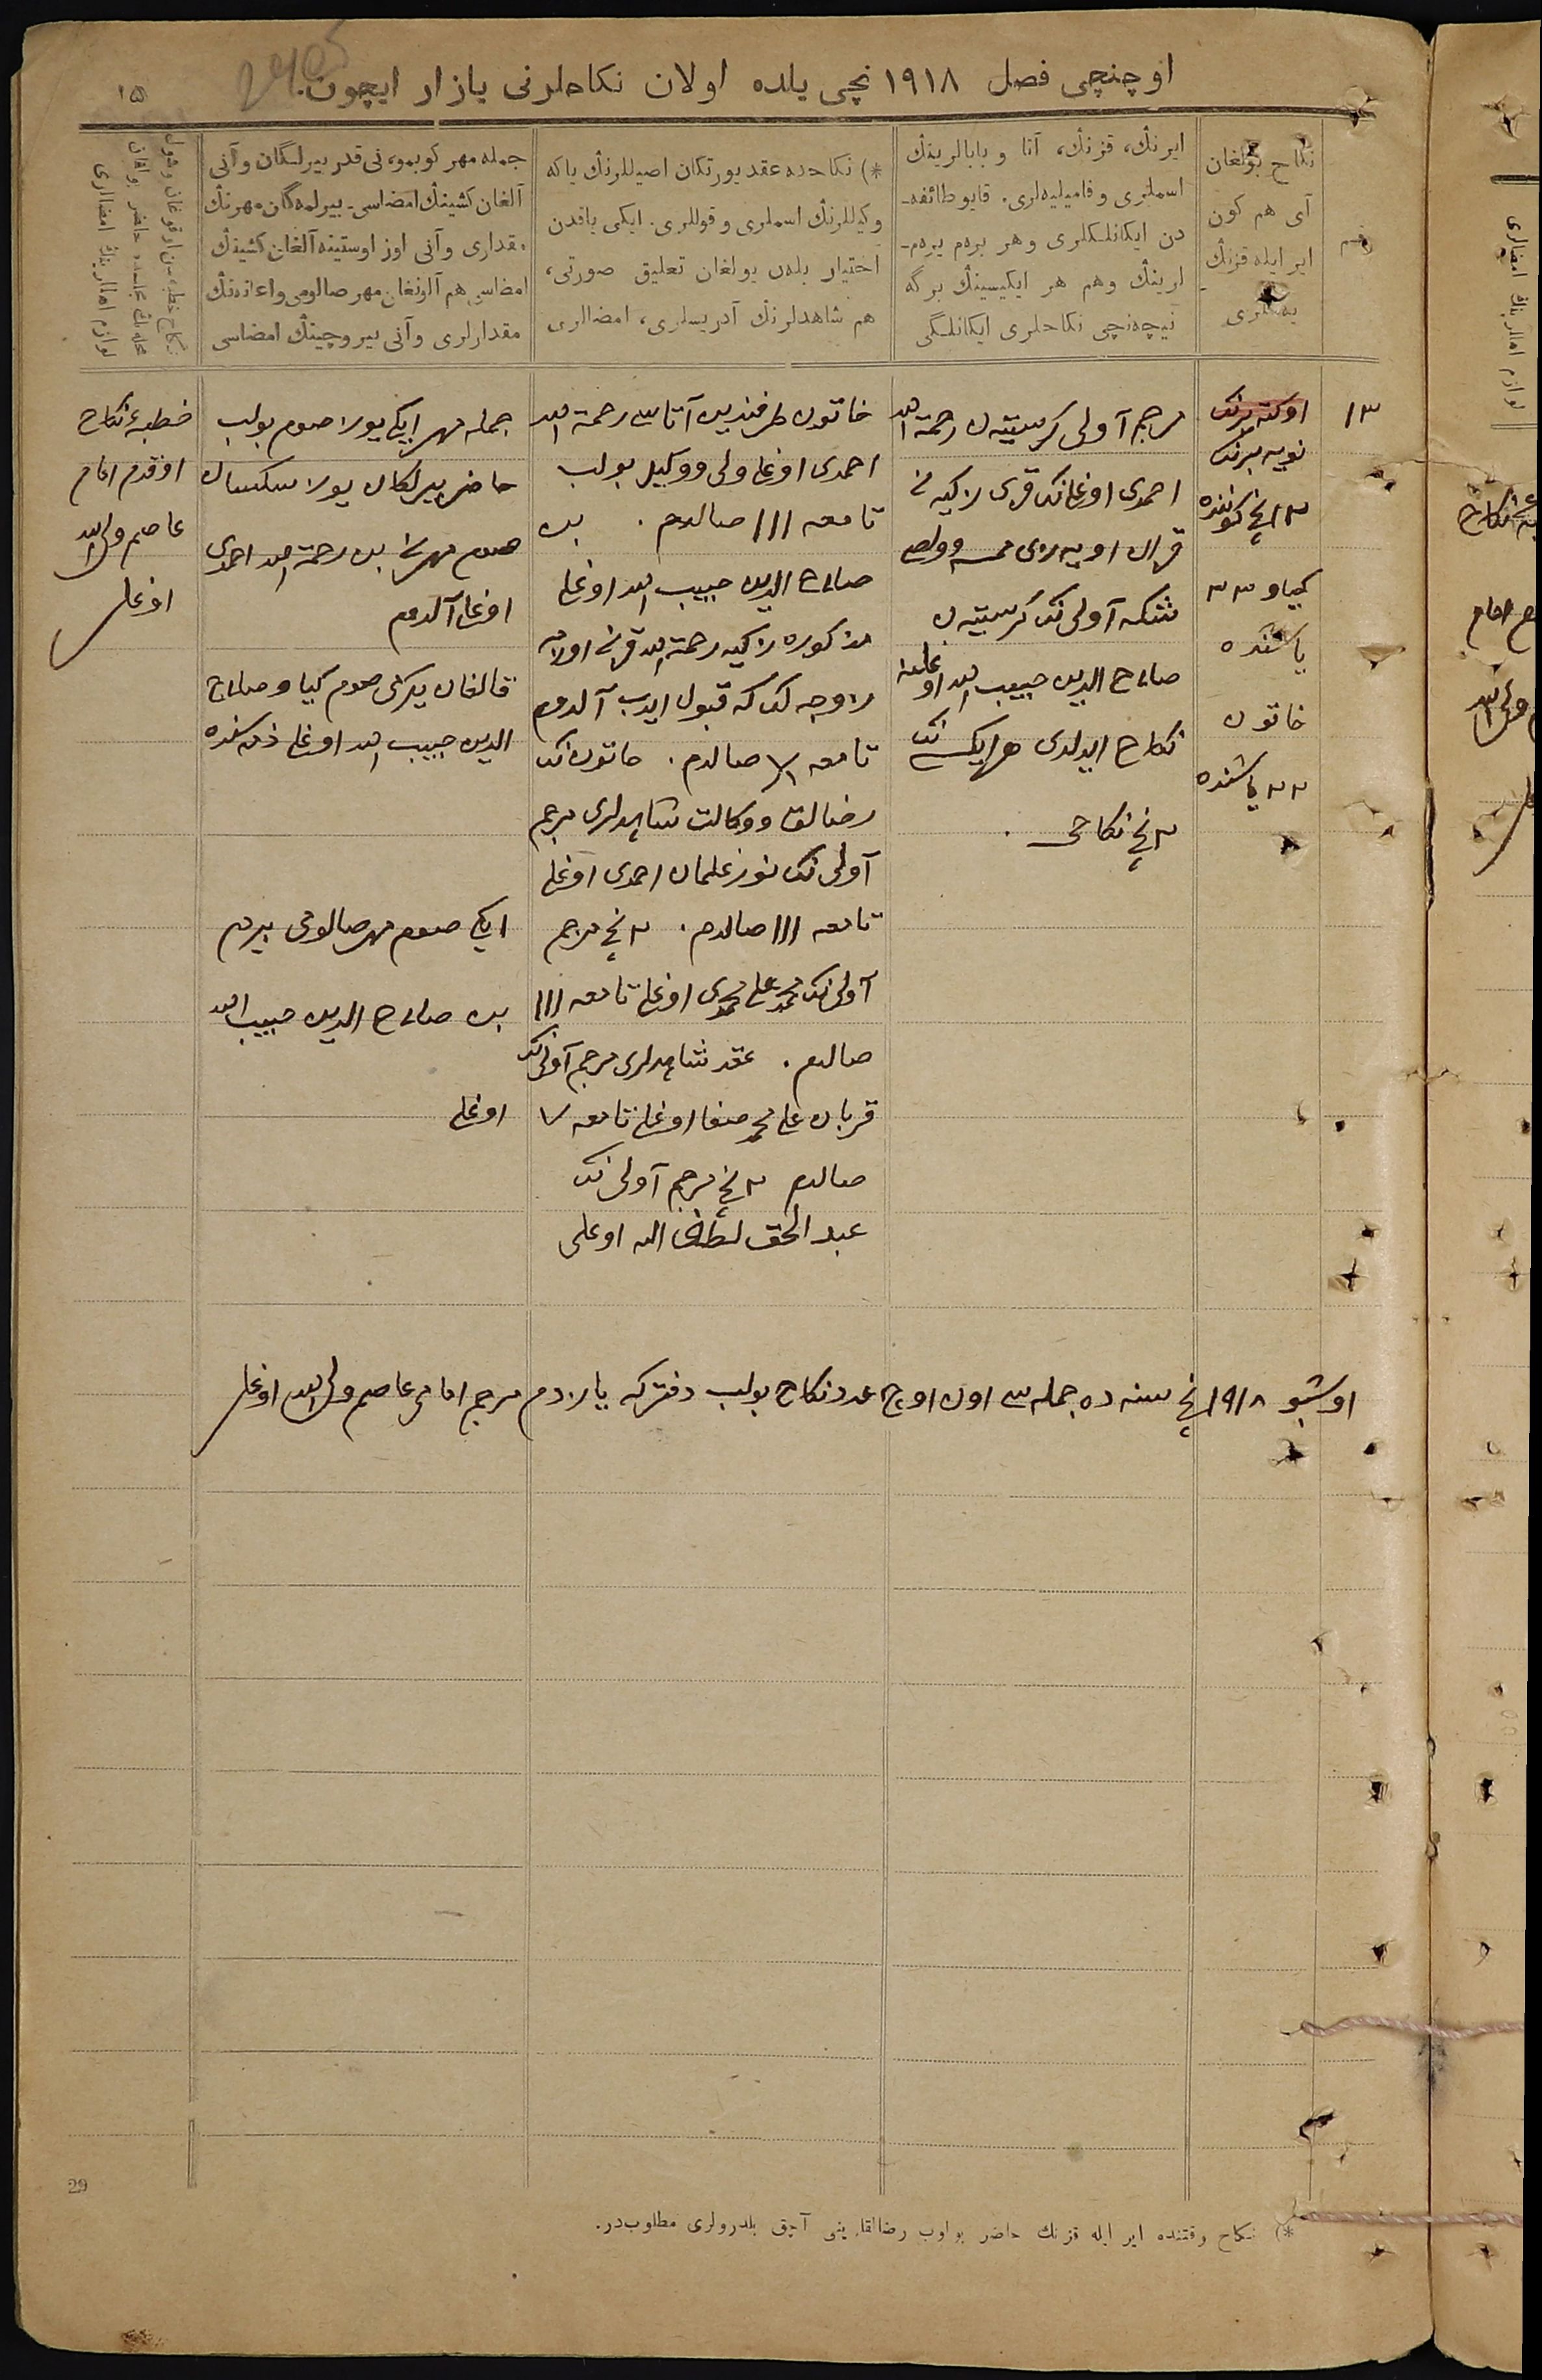 اوچنچی فصل ۱۹۱۸ نچی یلده اولان نکاحلرنی یازار ایچون.
۱۵
نکاح بولغان
آی هم کون
ایر ایله قزنڭ
یەشلری
ایرنڭ، قزنڭ، آتا و بابالرینڭ
اسملری و فامیلیەلری. قایو طائفه‌ـ
دن ایکانلکلری وهر برم یرم‌ـ
لرینڭ وهم هر ایکیسینڭ برگه
نیچەنچی نکاحلری ایکانلگی
*) نکاحده عقد یورتکان اصیللرنڭ یاکه
وکیللرنڭ اسملری و قوللری. ایکی یاقدن
اختیار بلەن بولغان تعلیق صورتی،
هم شاهدلرنڭ آدریسلری، امضالری
جمله مهر کوبمو، نی قدر بیرلگان وآنی
آلغان کشینڭ امضاسی۔ بیرلمەگان مهرنڭ
مقداری وآنی اوز اوستینه آلغان کشینڭ
امضاسی هم آلونغان مهر صالومی واعانەنڭ
مقدارلری وآنی بیروچینڭ امضاسی
۱۳
اوکتبرنڭ
نویه‌برنڭ
۲ انچی کوننده
کیاو ۳۳
یاشنده
خاتون
۲۲ یاشنده
مرجم آولی کرستیه‌ن رحمة الله
احمدی اوغلی‌نڭ قزی زاکیه نی
شتکه آولی‌نڭ کرستیه‌ن
صلاح الدین حبیب الله اوغلینه
نکاح ایدلدی هر ایکیسی‌نڭ
۲ نچی نکاحی.
خاتون طرفندین آتاسی رحمة الله
احمدی اوغلی ولی ووکیل بولب
تامغه ااا صالدم. بن
صلاح الدین حبیب الله اوغلی
مذکوره زاکیه رحمة الله قزینی اوزمه
زوجه لک که قبول ایدب آلدم
تامغه صالدم. خاتون‌نڭ
رضالق ووکالت شاهدلری مرجم
آولی‌نڭ نورعلمان احمدی اوغلی
تامغه ااا صالدم. ۲ نچی مرجم
آولی‌نڭ محمدعلی محمدی اوغلی تامغه ااا
صالدم. عقد شاهدلری مرجم آولی‌نڭ
قربان علی محمد صفا اوغلی تامغه
صالدم ۲ نچی مرجم آولی‌نڭ
عبد الحق لطف الله اوغلی
جمله مهر ایکی یوز صوم بولب
حاضر بیرلکان یوز سکسان
صوم مهرنی بن رحمة الله احمدی
اوغلی آلدم
قالغان یکرمی صوم کیاو صلاح
الدین حبیب الله اوغلی ذمه‌سنده
ایکی صوم مهر صالومی بیردم
بن صلاح الدین حبیب الله
اوغلی
خطبهٔ نکاح
اوقدم امام
عاصم ولی الله
اوغلی
اوشبو ۱۹۱۸ نچی سنه ده جمله سی اون اوچ عدد نکاح بولب دفترکه یازدم مرجم امامی عاصم ولی الله اوغلی
29
*) نکاح وقتنده ایر ایله قزنڭ حاضر بولوب رضالقلرینی آچق بلدرولری مطلوب‌در.